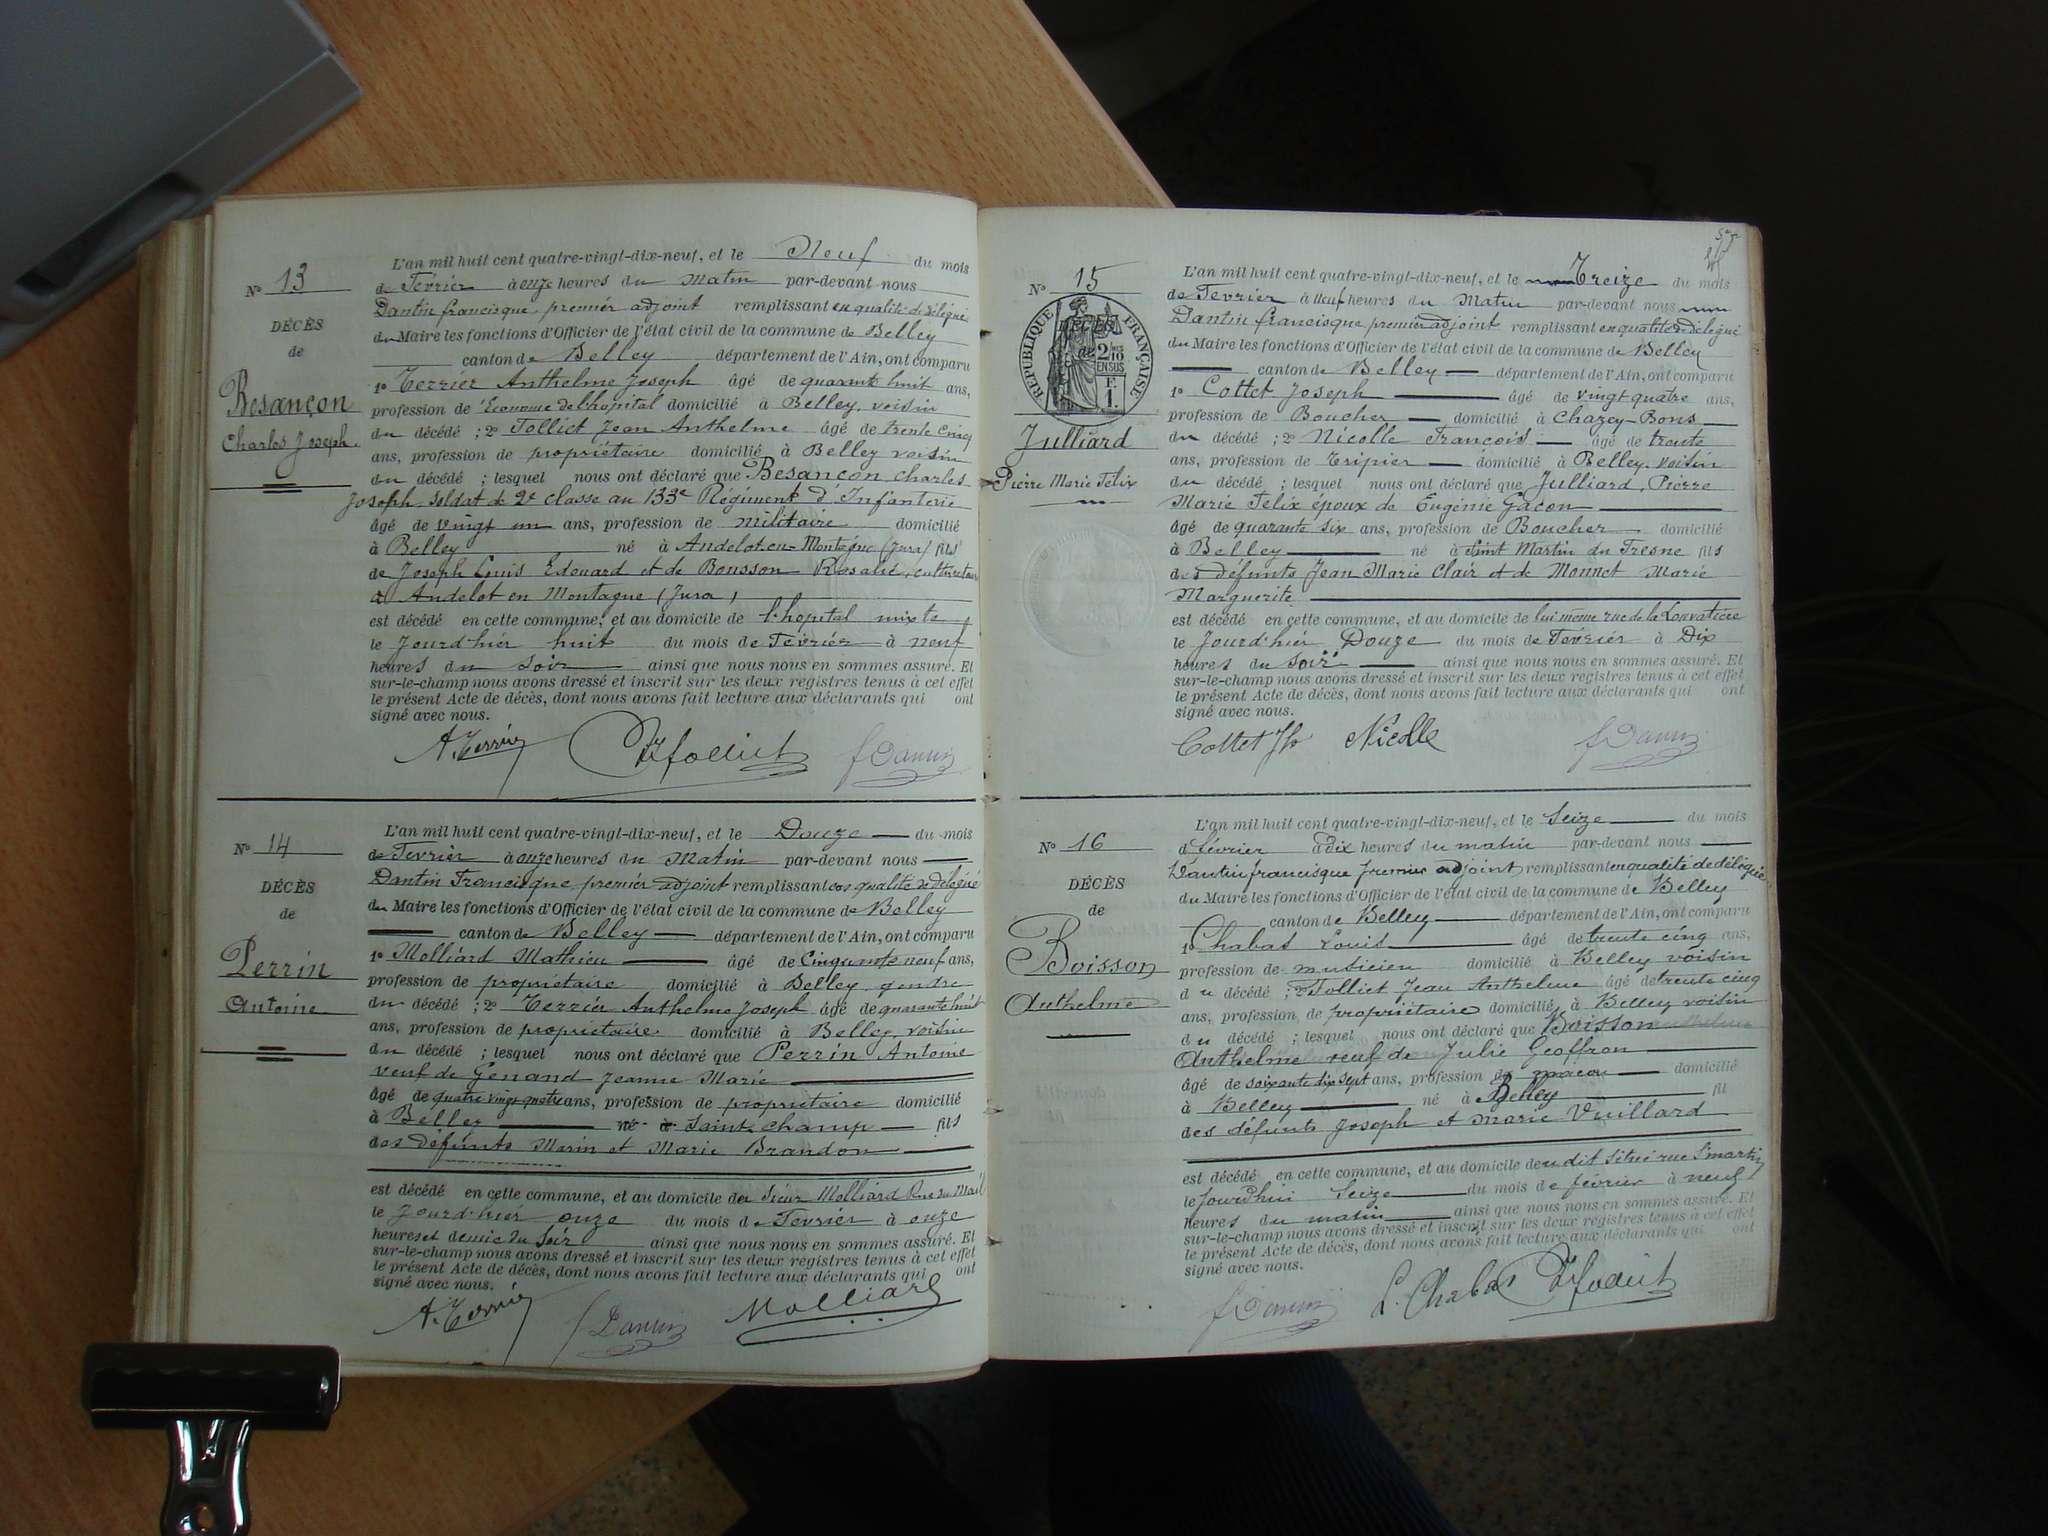 L'an mil huit cent quatre-vingt-dix-neuf, et le Neuf du mois
Nº 13
de Février à onze heures du Matin par-devant nous
Dantin francisque, premier adjoint remplissant en qualité de délégué
DÉCÈS
du Maire les fonctions d'Officier de l'état civil de la commune de Belley
de
canton de Belley département de l'Ain, ont comparu
Besançon
1º Terrier Anthelme Joseph âgé de quarante huit ans,
profession de Econome de l'hopital domicilié à Belley, voisin
Charles Joseph
du décédé ; 2º Tolliet Jean Anthelme âgé de trente cinq
ans, profession de propriétaire domicilié à Belley voisin
du décédé ; lesquel nous ont déclaré que Besançon Charles
Joseph, soldat de 2e classe au 133e Régiment d'Infanterie
âgé de vingt un ans, profession de militaire domicilié
à Belley né à Andelot-en-Montagne (Jura) fils
de Joseph Louis Edouard et de Bonsson Rosalie, cultivateurs
à Andelot en Montagne (Jura)
est décédé en cette commune, et au domicile de l'hopital mixte
le Jourd'hier huit du mois de Février à neuf
heures du soir ainsi que nous nous en sommes assuré. Et
sur-le-champ nous avons dressé et inscrit sur les deux registres tenus à cet effet
le présent Acte de décès, dont nous avons fait lecture aux déclarants qui ont
signé avec nous.
A. Terrier Tolliet f Dantin
L'an mil huit cent quatre-vingt-dix-neuf, et le Douze du mois
Nº 14
de Fevrier à onze heures du Matin par-devant nous
DÉCÈS
Dantin Francisque, premier adjoint remplissant en qualité de délégué
de
du Maire les fonctions d'Officier de l'état civil de la commune de Belley
canton de Belley département de l'Ain, ont comparu
Perrin
1º Molliard Mathieu âgé de Cinquante neuf ans,
profession de propriétaire domicilié à Belley, gendre
Antoine
du décédé ; 2º Terrier Anthelme Joseph âgé de quarante huit
ans, profession de propriétaire domicilié à Belley, voisin
du décédé ; lesquel nous ont déclaré que Perrin Antoine
veuf de Genand Jeanne Marie
âgé de quatre vingt quatre ans, profession de propriétaire domicilié
à Belley né à Saint-champ fils
des défunts Marin et Marie Brandon
est décédé en cette commune, et au domicile de Sieur Molliard Rue du Mail
le Jourd'hier onze du mois de Fevrier à onze
heures et demie du Soir ainsi que nous nous en sommes assuré. Et
sur-le-champ nous avons dressé et inscrit sur les deux registres tenus à cet effet
le présent Acte de décès, dont nous avons fait lecture aux déclarants qui ont
signé avec nous.
A. Terrier f Dantin Molliard
L'an mil huit cent quatre-vingt-dix-neuf, et le Treize du mois
Nº 15
de Fevrier à neuf heures du Matin par-devant nous
RÉPUBLIQUE FRANÇAISE
DÉCÈS
de
2/10 EN SUS
1 F.
Dantin francisque premier adjoint remplissant en qualité de délégué
du Maire les fonctions d'Officier de l'état civil de la commune de Belley
canton de Belley département de l'Ain, ont comparu
1º Cottet Joseph âgé de vingt quatre ans,
profession de Boucher domicilié à Chazey-Bons
Julliard
du décédé ; 2º Nicolle François âgé de trente
ans, profession de tripier domicilié à Belley, voisin
Pierre Marie Felix
du décédé ; lesquel nous ont déclaré que Julliard, Pierre
Marie Felix époux de Eugénie Gacon
âgé de quarante six ans, profession de Boucher domicilié
à Belley né à Saint Martin du Fresne fils
des défunts Jean Marie Clair et de Monnet Marie
Marguerite
est décédé en cette commune, et au domicile de lui même rue de la
le Jourd'hier Douze du mois de Février à Dix
heures du soir ainsi que nous nous en sommes assuré. Et
sur-le-champ nous avons dressé et inscrit sur les deux registres tenus à cet effet
le présent Acte de décès, dont nous avons fait lecture aux déclarants qui ont
signé avec nous.
Cottet Jh Nicolle f Dantin
L'an mil huit cent quatre-vingt-dix-neuf, et le Seize du mois
Nº 16
de Février à dix heures du matin par-devant nous
Dantin francisque premier adjoint remplissant en qualité de délégué
DÉCÈS
du Maire les fonctions d'Officier de l'état civil de la commune de Belley
de
canton de Belley département de l'Ain, ont comparu
1º Chabat Louis âgé de trente cinq ans,
Boisson
profession de musicien domicilié à Belley voisin
Anthelme
du décédé ; 2º Tolliet Jean Anthelme âgé de trente cinq
ans, profession de propriétaire domicilié à Belley voisin
du décédé ; lesquel nous ont déclaré que Boisson
Anthelme veuf de Julie Geoffron
âgé de soixante dix sept ans, profession de maçon domicilié
à Belley né à Belley fil
des défunts Joseph et Marie Vuillard
est décédé en cette commune, et au domicile de du dit situé rue St martin
le Jourd'hui Seize du mois de février à neuf
heures du matin ainsi que nous nous en sommes assuré. Et
sur-le-champ nous avons dressé et inscrit sur les deux registres tenus à cet effet
le présent Acte de décès, dont nous avons fait lecture aux déclarants qui ont
signé avec nous.
f Dantin L. Chabat Tolliet